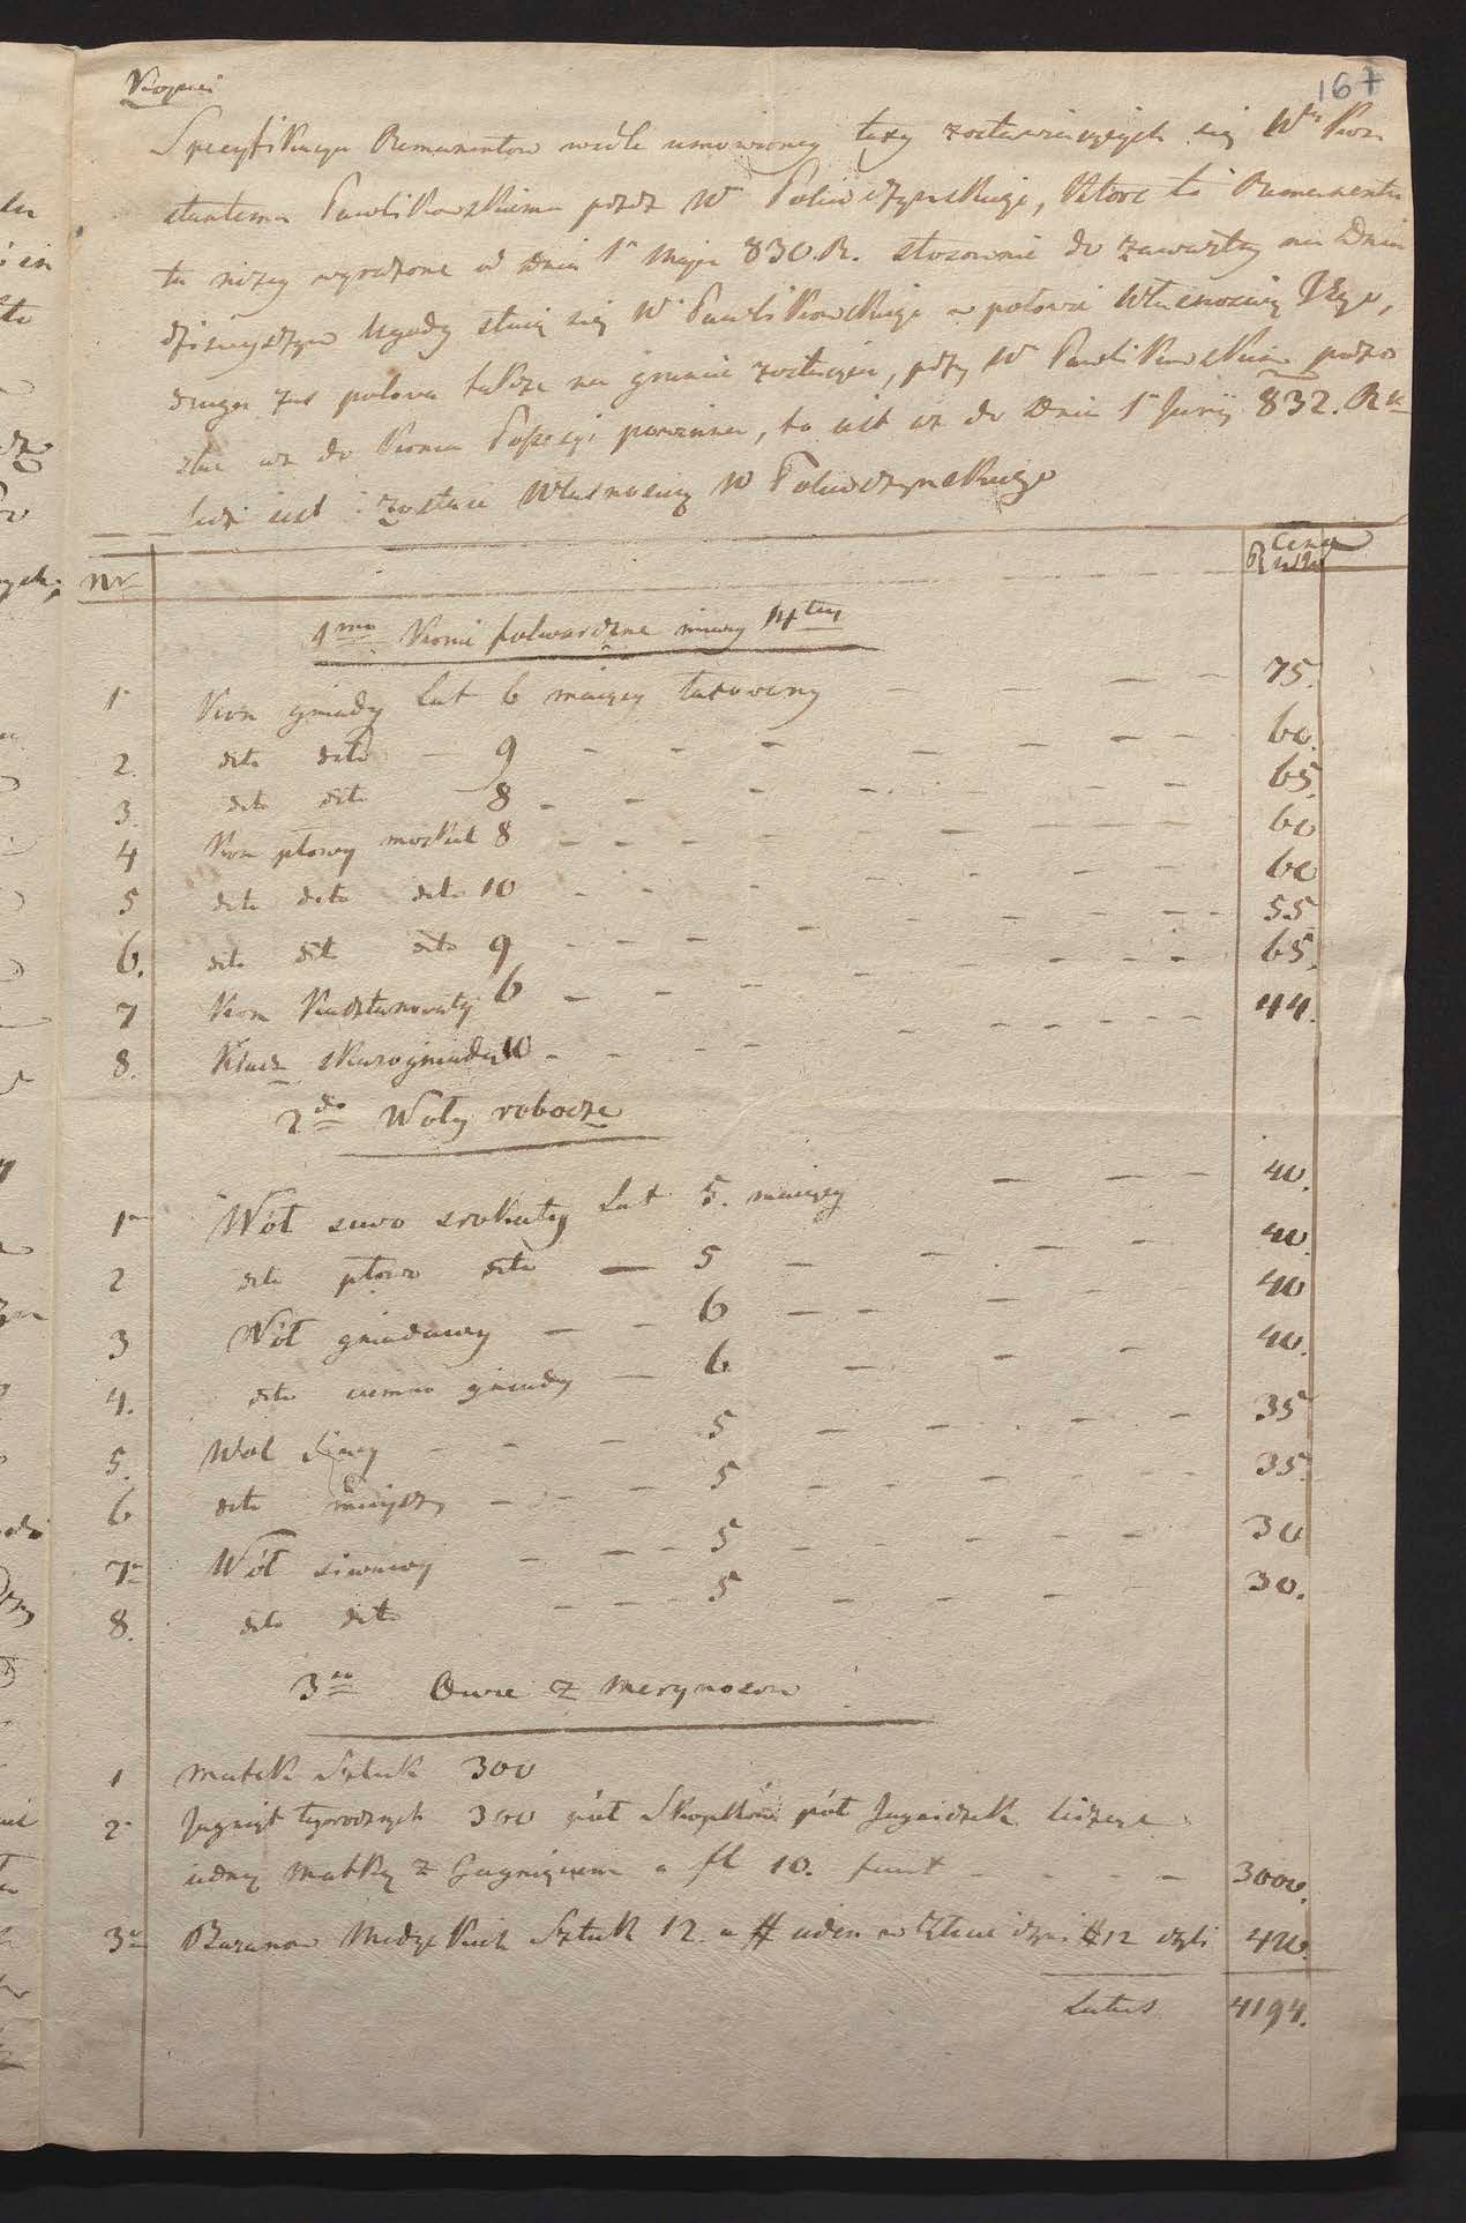 167
Specyfikacya Remanentow wedle umowioney taxy zostawiaiących się Wu Kon
stantemu Pawlikowskiemu przez W Poliwczyńskiego, które to Remanenta
tu niżey wyrażone od Dnia 1o Maja 830.R. stosownie do zawartey na Dniu
dzisieyszym Ugody staią się W Pawlikowskiego w połowie Własnością Jego,
druga zaś połowa także na gruncie zostaiąca, przy W Pawlikowskim pozo
stać aż do końca Possesyi powinna, to iest aż do Dnia 1o Junij 832. Rku
iest i zostaie Własnością W Poliwczyńskiego
Nr Cena
1mo Konie folwarczne miary 14tey
1 Kon gniady Lat 6 maiący taxowany 75.
2. dito dito 9 60.
3. dito dito 8 65.
4 Kon płowy 8 60
5 dito dito dito 10 60
6. dito dito dito 9 55
7 Kon Kasztanowaty 6 65.
8. Klacz skarogniada 10 44.
2do Woły robocze
1 Wół siwo srokaty Lat 5. maiący 40.
2 dito płowo dito 5 40.
3 Wół gniadawy 6 40
4. dito ciemno gniady 6 40.
5. Wol Siwy 5 35
6 dito mnieyszy 5 35.
7 Wół siwawy 5 30
8. dito dito 5 30.
3tio Owce z Merynosow
1 Matek Sztuk 300
2 Jagniąt tegorocznych 300 pół Skopków pół Jagniczek licząc
iedną Matkę z Jagnięciem a fl 10. 3000.
3 Baranow Sztuk 12. a # ieden w # 12 czyli 420.
Latus 4194.